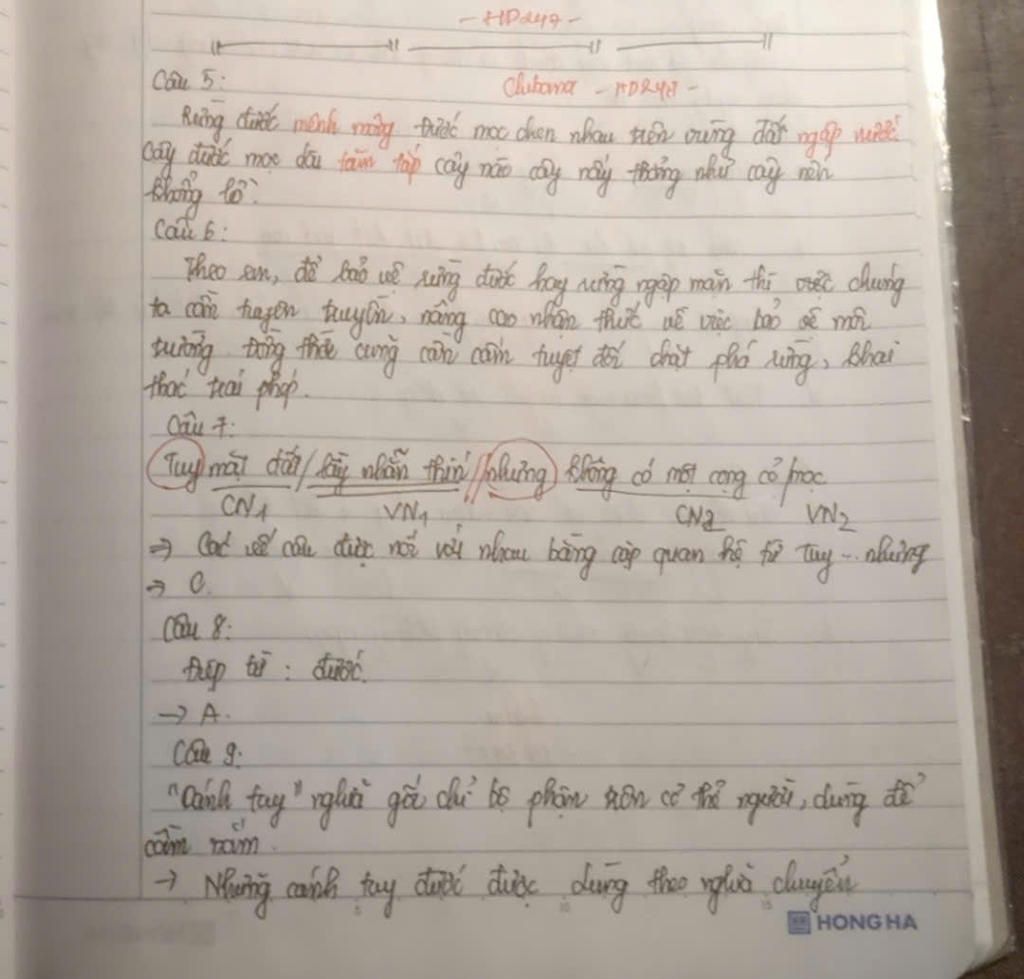 - HD247 -
Câu 5:
- HD247 -
Rừng đước mênh mông đước mọc chen nhau trên vùng đất ngập nước
Cây đước mọc dài tăm tắp cây nào cây nấy thẳng như cây nến
khổng lồ.
Câu 6:
Theo em, để bảo vệ rừng đước hay rừng ngập mặn thì việc chúng
ta cần tuyên truyền, nâng cao nhận thức về việc bảo vệ môi
trường đồng thời cũng cần cấm tuyệt đối chặt phá rừng, khai
thác trái phép.
Câu 7:
Tuy mặt đất / lầy nhẵn thín // nhưng không có một cọng cỏ / mọc
CN1 VN1 CN2 VN2
=> Các vế câu được nối với nhau bằng cặp quan hệ từ Tuy... nhưng
=> C.
Câu 8:
Điệp từ : đước.
-> A.
Câu 9:
"Cánh tay" nghĩa gốc chỉ bộ phận trên cơ thể người, dùng để
cầm nắm.
-> Những cánh tay đước được dùng theo nghĩa chuyển
HONG HA